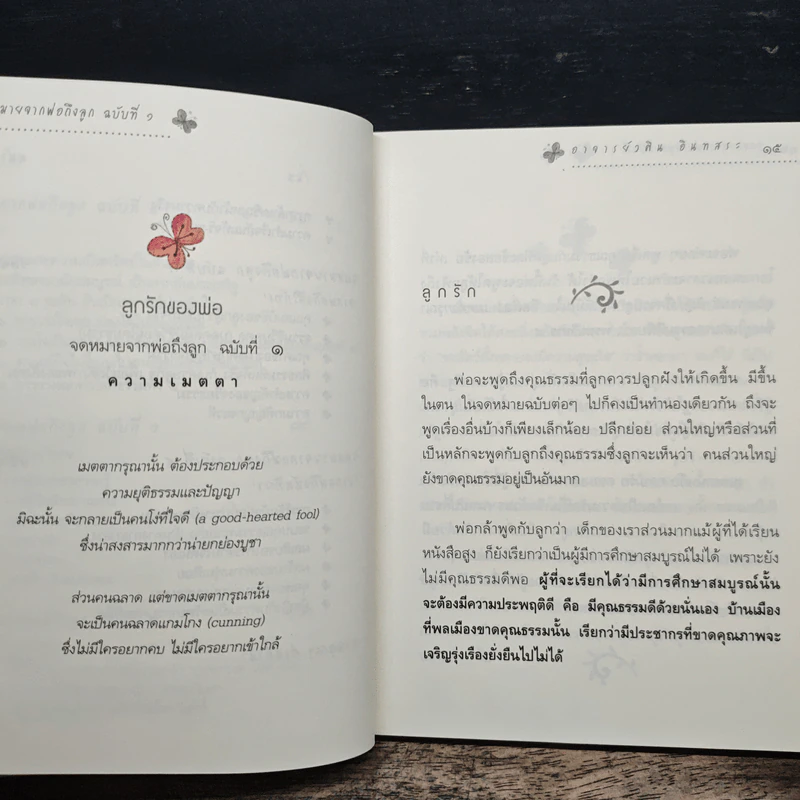 มายจากพ่อถึงลูก ฉบับที่ ๑
ลูกรักของพ่อ
จดหมายจากพ่อถึงลูก ฉบับที่ ๑
ความเมตตา
เมตตากรุณานั้น ต้องประกอบด้วย
ความยุติธรรมและปัญญา
มิฉะนั้น จะกลายเป็นคนโง่ที่ใจดี (a good-hearted fool)
ซึ่งน่าสงสารมากกว่าน่ายกย่องบูชา
ส่วนคนฉลาด แต่ขาดเมตตากรุณานั้น
จะเป็นคนฉลาดแกมโกง (cunning)
ซึ่งไม่มีใครอยากคบ ไม่มีใครอยากเข้าใกล้
อาจารย์วศิน อินทสระ ๑๕
ลูกรัก
พ่อจะพูดถึงคุณธรรมที่ลูกควรปลูกฝังให้เกิดขึ้น มีขึ้น
ในตน ในจดหมายฉบับต่อๆ ไปก็คงเป็นทำนองเดียวกัน ถึงจะ
พูดเรื่องอื่นบ้างก็เพียงเล็กน้อย ปลีกย่อย ส่วนใหญ่หรือส่วนที่
เป็นหลักจะพูดกับลูกถึงคุณธรรมซึ่งลูกจะเห็นว่า คนส่วนใหญ่
ยังขาดคุณธรรมอยู่เป็นอันมาก
พ่อกล้าพูดกับลูกว่า เด็กของเราส่วนมากแม้ผู้ที่ได้เรียน
หนังสือสูง ก็ยังเรียกว่าเป็นผู้มีการศึกษาสมบูรณ์ไม่ได้ เพราะยัง
ไม่มีคุณธรรมดีพอ ผู้ที่จะเรียกได้ว่ามีการศึกษาสมบูรณ์นั้น
จะต้องมีความประพฤติดี คือ มีคุณธรรมดีด้วยนั่นเอง บ้านเมือง
ที่พลเมืองขาดคุณธรรมนั้น เรียกว่ามีประชากรที่ขาดคุณภาพจะ
เจริญรุ่งเรืองยั่งยืนไปไม่ได้